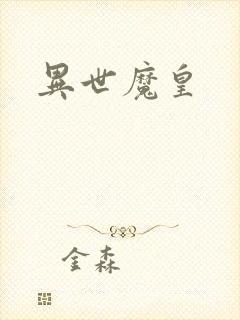 異世魔皇
金森